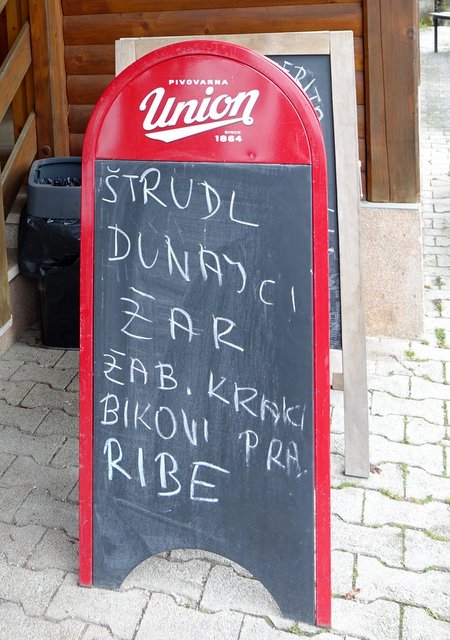 PIVOVARNA
Union
SINCE
1864
ŠTRUDL
DUNAJCI
ŽAR
ŽAB. KRAKI
BIKOVI PRA.
RIBE